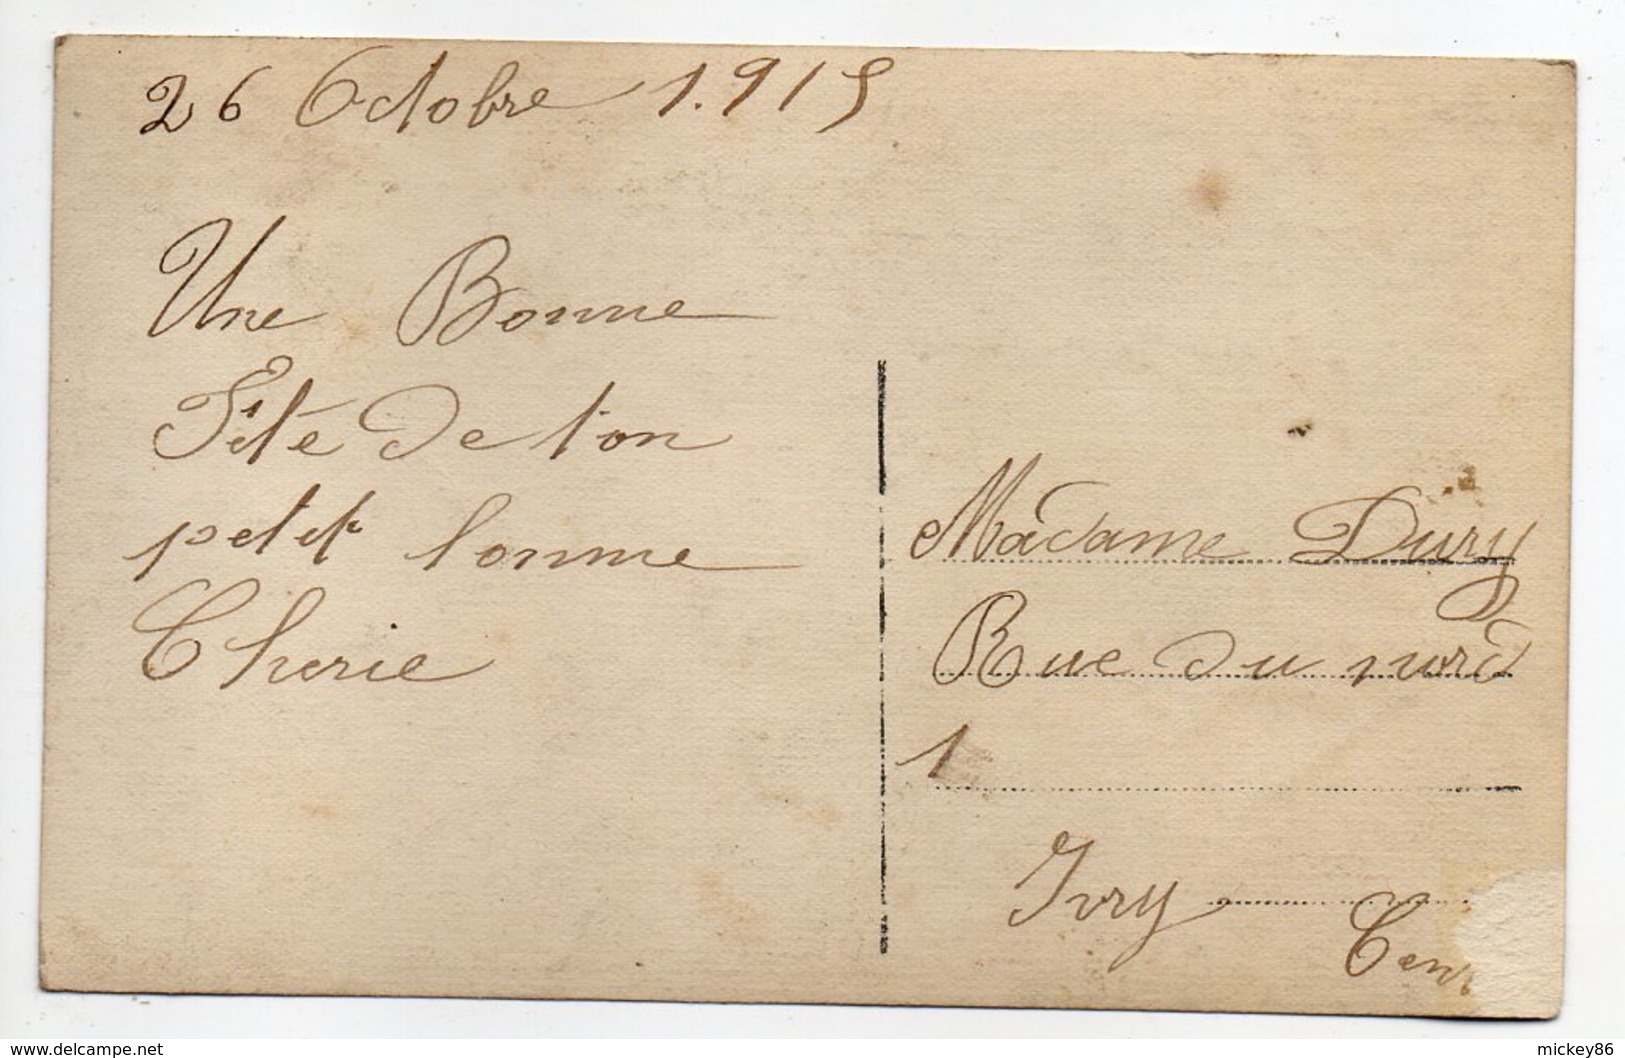 26 Octobre 1.915
Une Bonne
Fête de ton
petit homme
Cherie
Madame Dury
Rue du nord
1
Ivry
www.delcampe.net
mickey86